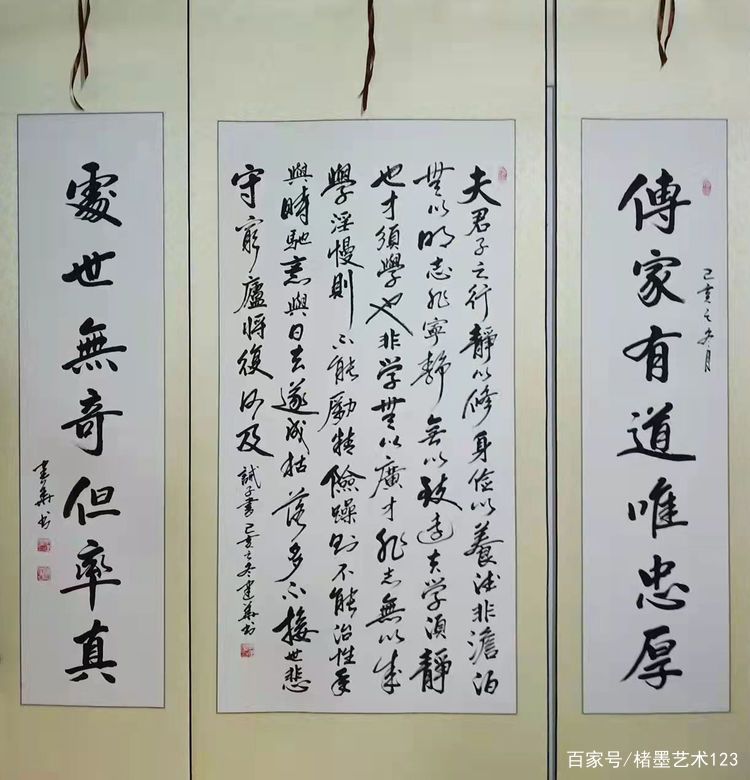 傳家有道唯忠厚
己亥之冬月
夫君子之行靜以修身儉以養德非澹泊
無以明志非寧靜無以致遠夫学須靜
也才須學也非学無以廣才非志無以成
學淫慢則不能勵精險躁則不能治性年
與時馳意與日去遂成枯落多不接世悲
守窮廬將復何及
誡子書己亥之冬建華书
處世無奇但率真
建華书
百家号/楮墨艺术123